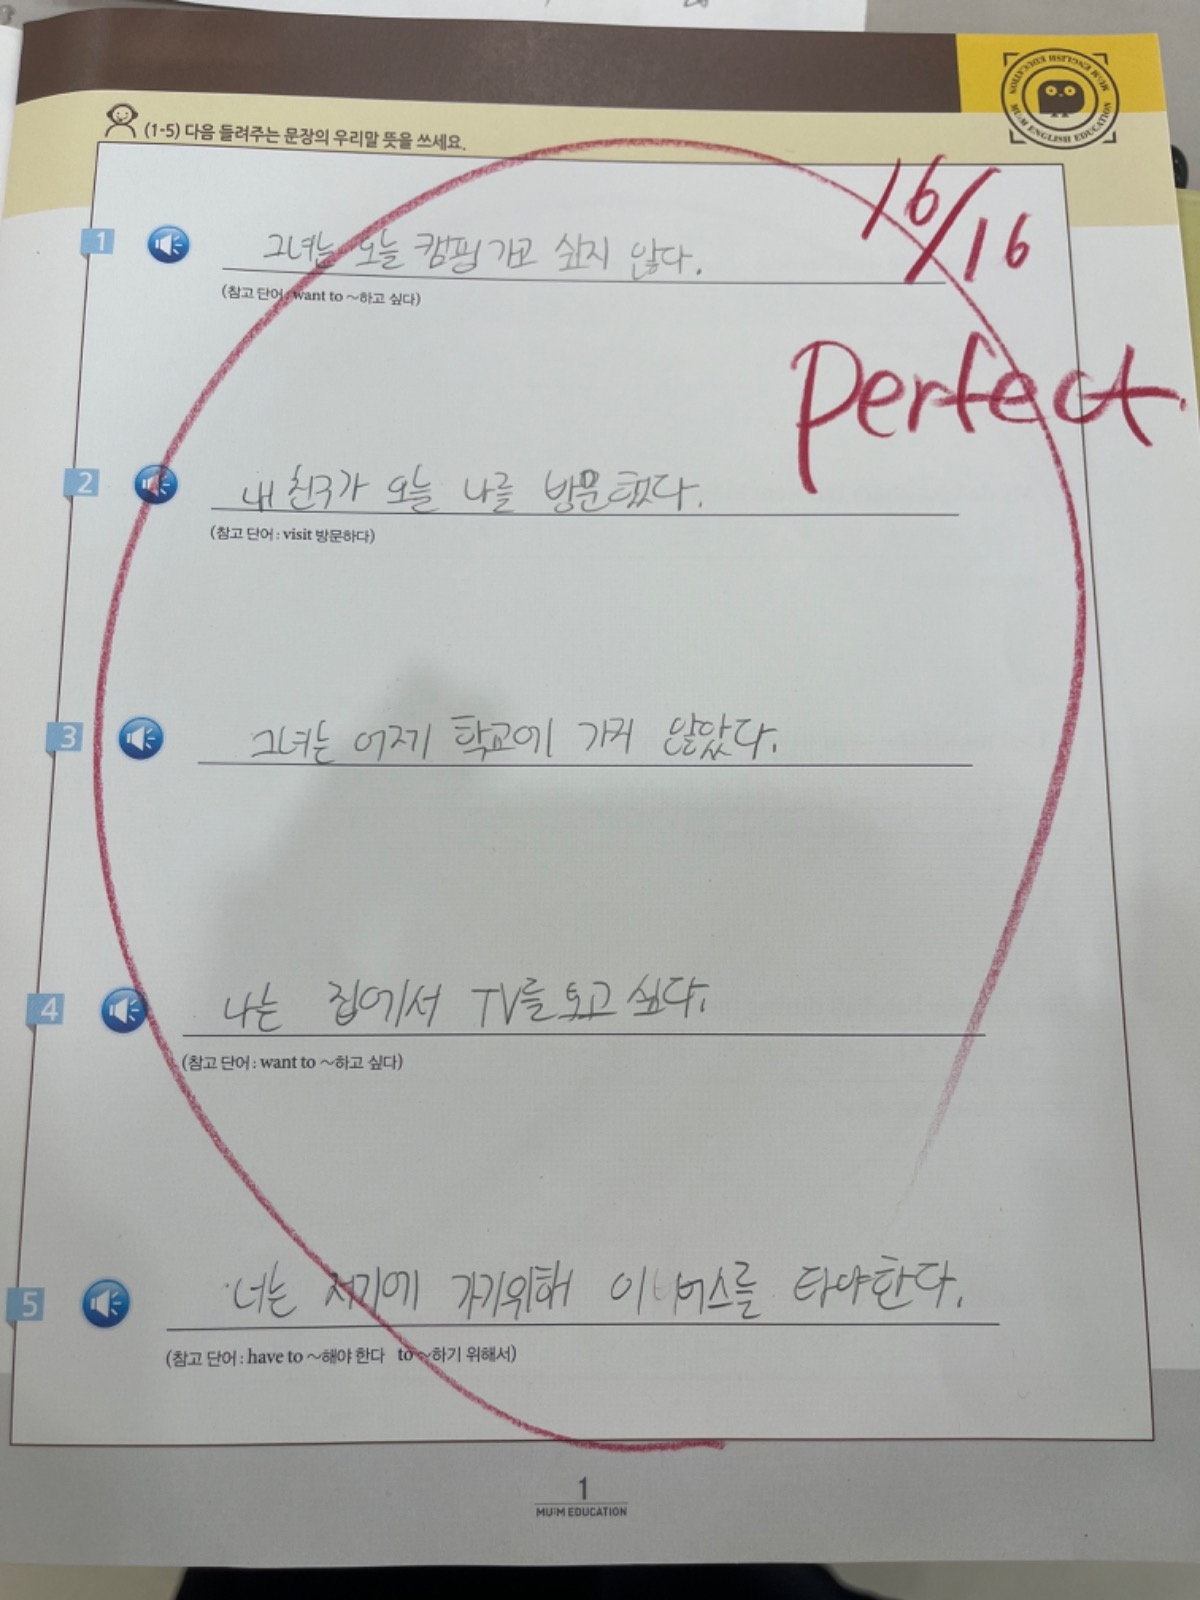 MU:M ENGLISH EDUCATION
MU:M ENGLISH EDUCATION
(1-5) 다음 들려주는 문장의 우리말 뜻을 쓰세요.
16/16
1 그녀는 오늘 캠핑 가고 싶지 않다.
(참고 단어 : want to ~하고 싶다)
perfect.
2 내 친구가 오늘 나를 방문했다.
(참고 단어 : visit 방문하다)
3 그녀는 어제 학교에 가지 않았다.
4 나는 집에서 TV를 보고 싶다.
(참고 단어 : want to ~하고 싶다)
5 너는 저기에 가기위해 이 버스를 타야한다.
(참고 단어 : have to ~해야 한다 to ~하기 위해서)
1
MU:M EDUCATION